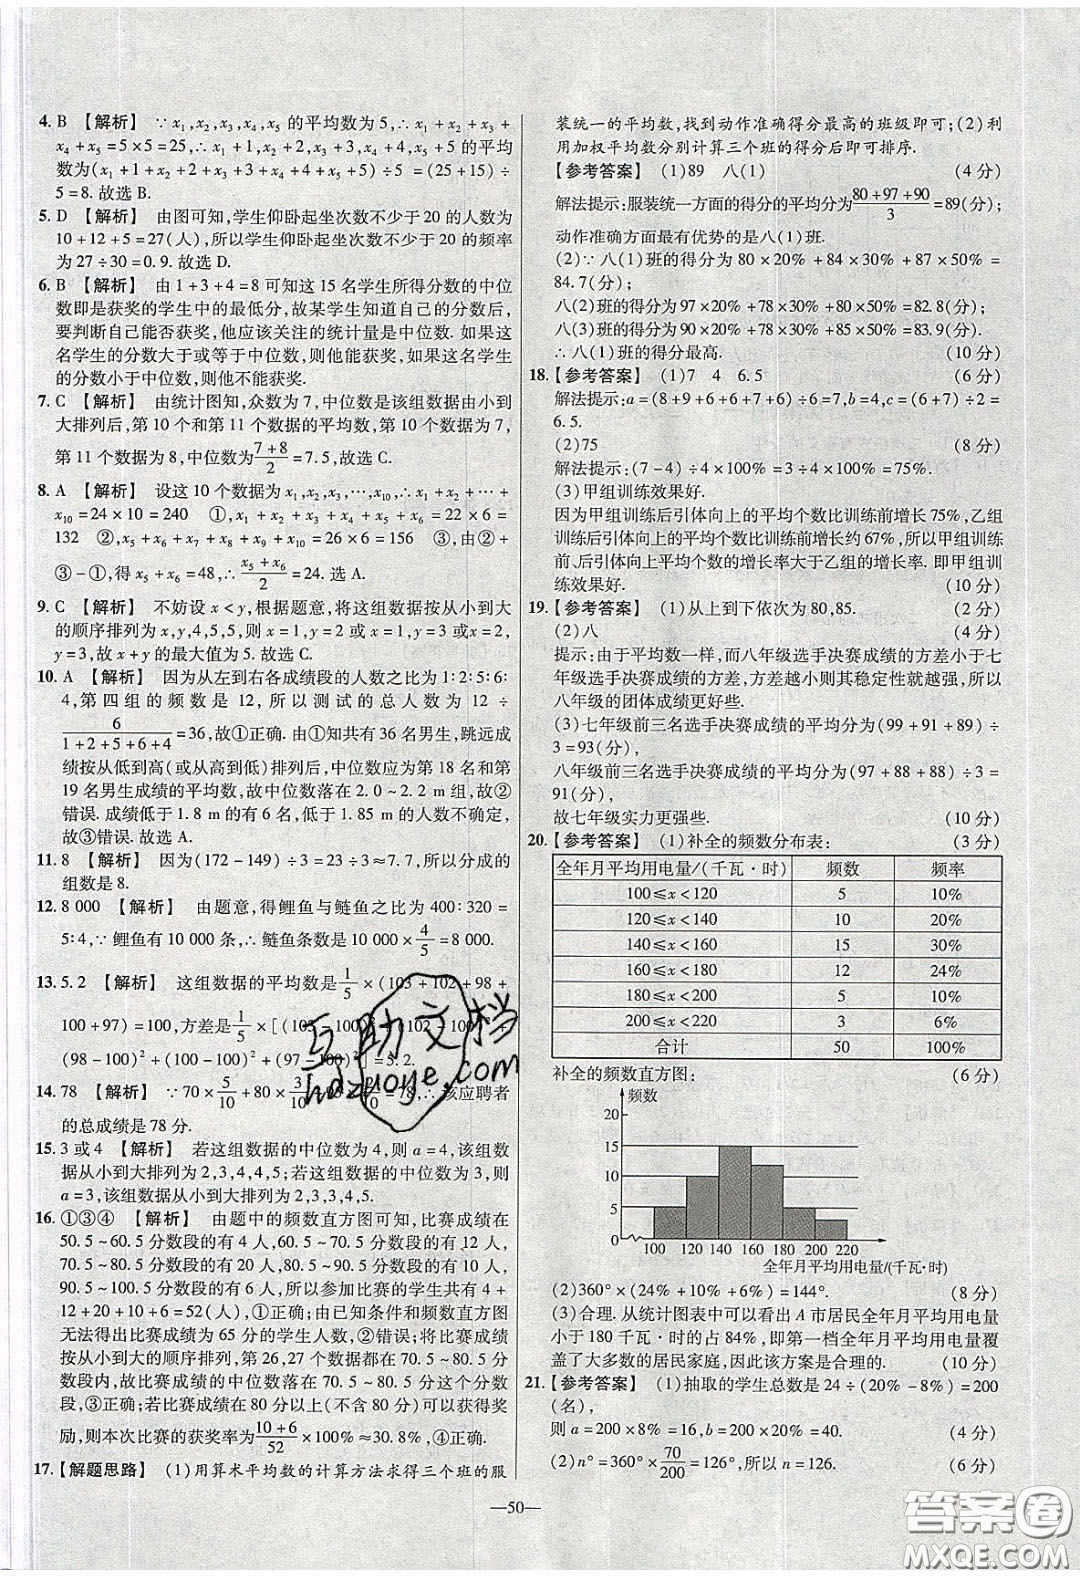 4. B 【解析】 ∵x₁,x₂,x₃,x₄,x₅ 的平均数为 5,∴x₁+x₂+x₃+
x₄+x₅=5×5=25,∴x₁+1,x₂+2,x₃+3,x₄+4,x₅+5 的平
均数为(x₁+1+x₂+2+x₃+3+x₄+4+x₅+5)÷5=(25+15)÷
5=8. 故选 B.
5. D 【解析】 由图可知,学生仰卧起坐次数不少于 20 的人数为
10+12+5=27(人),所以学生仰卧起坐次数不少于 20 的频率
为 27÷30=0.9. 故选 D.
6. B 【解析】 由 1+3+4=8 可知这 15 名学生所得分数的中位
数即是获奖的学生中的最低分,故某学生知道自己的分数后,
要判断自己能否获奖,他应该关注的统计量是中位数. 如果这
名学生的分数大于或等于中位数,则他能获奖,如果这名学生
的分数小于中位数,则他不能获奖.
7. C 【解析】 由统计图知,众数为 7,中位数是该组数据由小到
大排列后,第 10 个和第 11 个数据的平均数,第 10 个数据为 7,
第 11 个数据为 8,中位数为(7+8)/2=7.5,故选 C.
8. A 【解析】 设这 10 个数据为 x₁,x₂,x₃,…,x₁₀,∴x₁+x₂+…+
x₁₀=24×10=240 ①,x₁+x₂+x₃+x₄+x₅+x₆=22×6=
132 ②,x₅+x₆+…+x₁₀=26×6=156 ③,由②+
③-①,得 x₅+x₆=48,∴(x₅+x₆)/2=24. 选 A.
9. C 【解析】 不妨设 x<y,根据题意,将这组数据按从小到大
的顺序排列为 x,y,4,5,5,则 x=1,y=2或x=1,y=3或x=2,
y=3,故 x+y 的最大值为 5. 故选 C.
10. A 【解析】 因为从左到右各成绩段的人数之比为 1∶2∶5∶6∶
4,第四组的频数是 12,所以测试的总人数为 12÷
6/(1+2+5+6+4)=36,故①正确. 由①知共有 36 名男生,跳远成
绩按从低到高(或从高到低)排列后,中位数应为第 18 名和第
19 名男生成绩的平均数,故中位数落在 2.0~2.2 m 组,故②
错误. 成绩低于 1.8 m 的人数确定,低于 1.85 m 的人数不确定,
故③错误. 故选 A.
11. 8 【解析】 因为(172-149)÷3=23÷3≈7.7,所以分成的
组数是 8.
12. 8 000 【解析】 由题意,得鲤鱼与鲢鱼之比为 400∶320=
5∶4,∵鲤鱼有 10 000 条,∴鲢鱼条数是 10 000×4/5=8 000.
13. 5.2 【解析】 这组数据的平均数是1/5×(103+102+98+
100+97)=100,方差是1/5×[(103-100)²+(102-100)²+
(98-100)²+(100-100)²+(97-100)²]=5.2.
14. 78 【解析】 ∵70×5/10+80×3/10+ =78,∴该应聘者
的总成绩是 78 分.
15. 3 或 4 【解析】 若这组数据的中位数为 4,则 a=4,该组数
据从小到大排列为 2,3,4,4,5;若这组数据的中位数为 3,则
a=3,该组数据从小到大排列为 2,3,3,4,5.
16. ①③④ 【解析】 由题中的频数直方图可知,比赛成绩在
50.5~60.5 分数段的有 4 人,60.5~70.5 分数段的有 12
人,70.5~80.5 分数段的有 20 人,80.5~90.5 分数段的有 10 人,
90.5~100.5 分数段的有 6 人,所以参加比赛的学生共有 4+
12+20+10+6=52(人),①正确;由已知条件和频数直方图
无法得出比赛成绩为 65 分的学生人数,②错误;将比赛成绩
按从小到大的顺序排列,第 26,27 个数据都在 70.5~80.5 分
数段,所以比赛成绩的中位数落在 70.5~80.5 分这个分数
段,③正确;因为成绩在 80 分以上(不含 80 分)的可以获得奖
励,则本次比赛的获奖率为(10+6)/52×100%≈30.8%,④正确.
17. 【解题思路】 (1)用算术平均数的计算方法求得三个班的服
装统一的平均数,找到动作准确得分最高的班级即可;(2)利
用加权平均数分别计算三个班的得分后即可排序.
【参考答案】 (1)89 八(1) (4 分)
解法提示:服装统一方面的得分的平均分为(80+97+90)/3=89(分);
动作准确方面最有优势的是八(1)班.
(2)∵八(1)班的得分为 80×20%+84×30%+87×50%=
84.7(分);
八(2)班的得分为 97×20%+78×30%+80×50%=82.8(分);
八(3)班的得分为 90×20%+78×30%+85×50%=83.9(分);
∴八(1)班的得分最高. (10 分)
18. 【参考答案】 (1)7 4 6.5 (6 分)
解法提示:a=(8+9+6+6+7+6)÷6=7,b=4,c=(6+7)÷2=
6.5.
(2)75 (8 分)
解法提示:(7-4)÷4×100%=3÷4×100%=75%.
(3)甲组训练效果好.
因为甲组训练后引体向上的平均个数比训练前增长 75%,乙组
训练后引体向上的平均个数比训练前增长约 67%,所以甲组训
练前、后引体向上平均个数的增长率大于乙组的增长率. 即甲组训
练效果好. (10 分)
19. 【参考答案】 (1)从上到下依次为 80,85. (2 分)
(2)八 (4 分)
提示:由于平均数一样,而八年级选手决赛成绩的方差小于七
年级选手决赛成绩的方差,方差越小则其稳定性就越强,所以
八年级的团体成绩更好些.
(3)七年级前三名选手决赛成绩的平均分为(99+91+89)÷
3=93(分),
八年级前三名选手决赛成绩的平均分为(97+88+88)÷3=
91(分),
故七年级实力更强些. (10 分)
20. 【参考答案】 (1)补全的频数分布表: (3 分)
全年月平均用电量/(千瓦·时) 频数 频率
100≤x<120 5 10%
120≤x<140 10 20%
140≤x<160 15 30%
160≤x<180 12 24%
180≤x<200 5 10%
200≤x<220 3 6%
合计 50 100%
补全的频数直方图: (6 分)
频数
20
15
10
5
0
100 120 140 160 180 200 220
全年月平均用电量/(千瓦·时)
(2)360°×(24%+10%+6%)=144°. (8 分)
(3)合理. 从统计图表中可以看出 A 市居民全年月平均用电量
小于 180 千瓦·时的占 84%,即第一档全年月平均用电量覆
盖了大多数的居民家庭,因此该方案是合理的. (10 分)
21. 【参考答案】 (1)抽取的学生总数是 24÷(20%-8%)=200
(名),
则 a=200×8%=16,b=200×20%=40. (4 分)
(2)n°=360°×70/200=126°,所以 n=126. (6 分)
—50—
互助文档
hdzuoye.com
答案圈
MXQE.COM